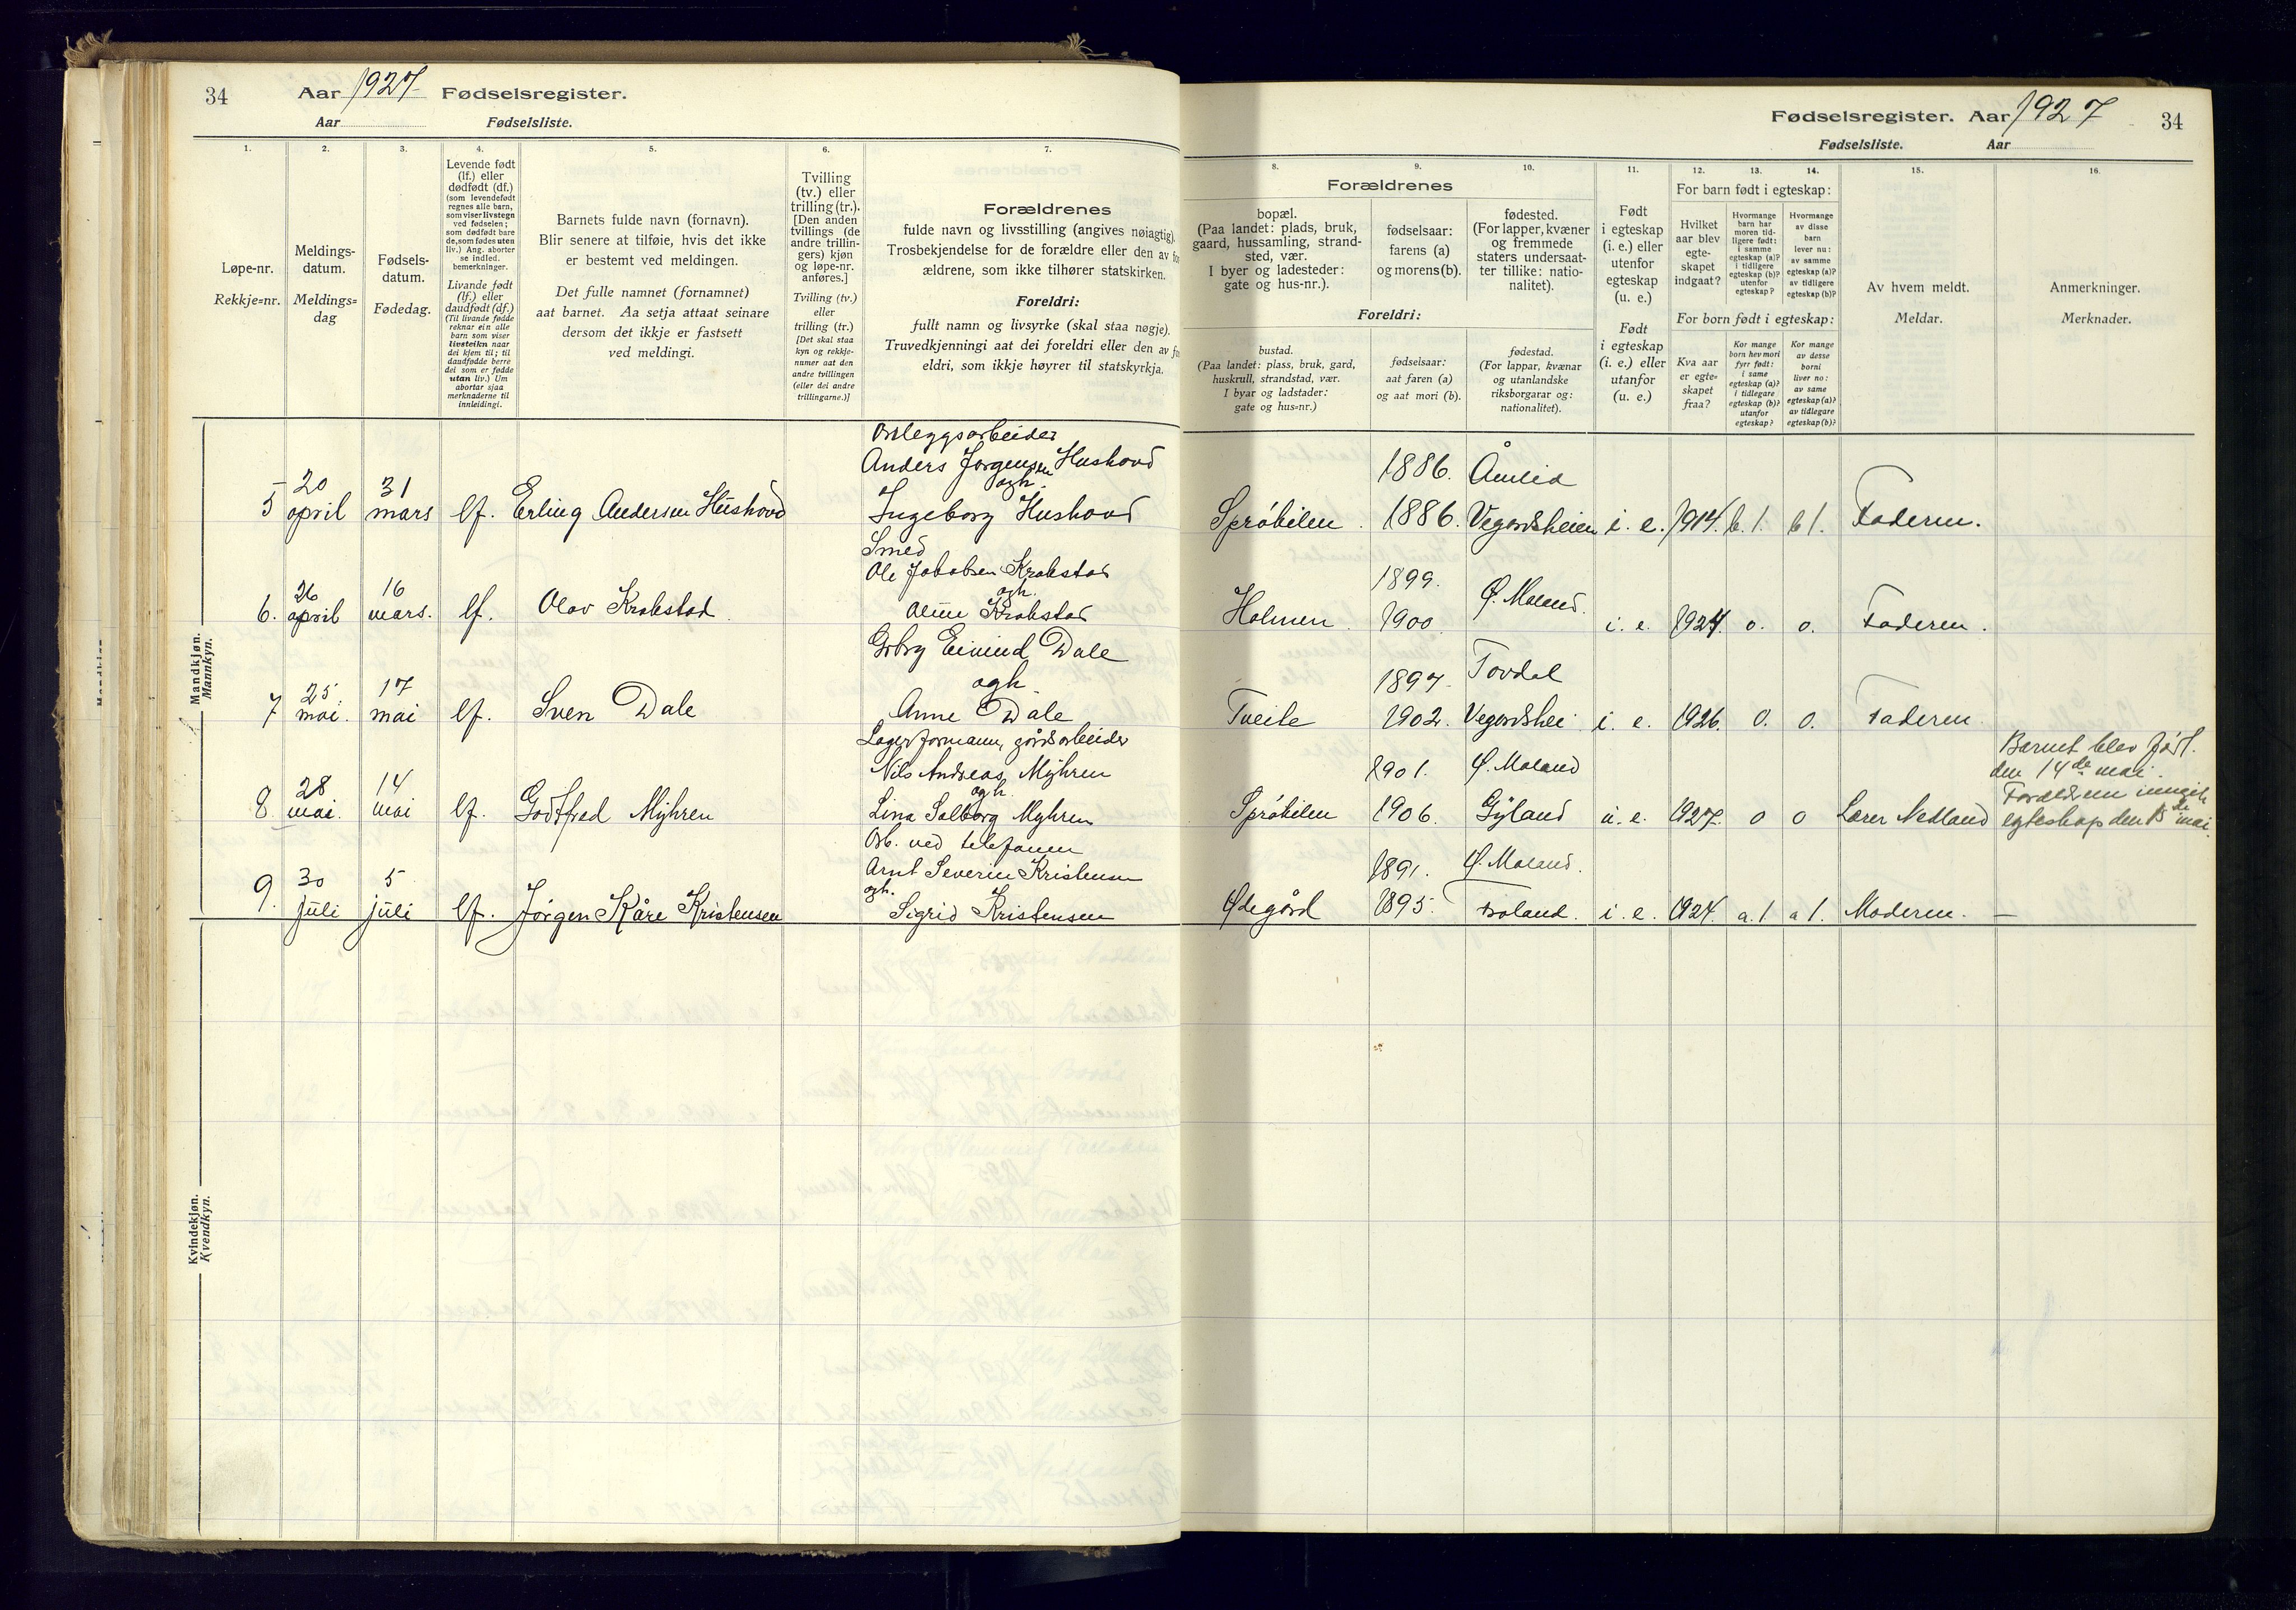 34 Aar 1927 Fødselsregister.
Aar Fødselsliste.
1. 2. 3. 4. 5. 6. 7.
Løpe-nr.
Rekkje=nr.
Meldings-
datum.
Meldings=
dag
Fødsels-
datum.
Fødedag.
Levende født
(lf.) eller
dødfødt (df.)
(som levendefødt
regnes alle barn,
som viser livstegn
ved fødselen;
som dødfødt bare
de, som fødes uten
liv.) Ang. aborter
se indled.
bemerkninger.
Livande født
(lf.) eller
daudfødt (df.)
(Til livande fødde
reknar ein alle
barn som viser
livsteikn naar
dei kjem til; til
daudfødde berre
dei som er fødde
utan liv.) Um
abortar sjaa
merknaderne til
innleidingi.
Barnets fulde navn (fornavn).
Blir senere at tilføie, hvis det ikke
er bestemt ved meldingen.
Det fulle namnet (fornamnet)
aat barnet. Aa setja attaat seinare
dersom det ikkje er fastsett
ved meldingi.
Tvilling
(tv.) eller
trilling (tr.).
[Den anden
tvillings (de
andre trillin-
gers) kjøn
og løpe-nr.
anføres.]
Tvilling (tv.)
eller
trilling (tr.)
[Det skal staa
kyn og rekkje-
numer aat den
andre tvillingen
(eller dei andre
trillingarne.)]
Forældrenes
fulde navn og livsstilling (angives nøiagtig).
Trosbekjendelse for de forældre eller den av
ældrene, som ikke tilhører statskirken.
Foreldri:
fullt namn og livsyrke (skal staa nøgje).
Truvedkjenningi aat dei foreldri eller den av
eldri, som ikkje høyrer til statskyrkja.
Mandkjøn.
Mannkyn.
Anleggsarbeider
Anders Jørgensen Hushovd
20 31 ogh.
5 april mars lf. Erling Andersen Hushovd Ingeborg Hushovd
Smed
Ole Jakobsen Krokstad
26 16 ogh.
6. april mars. lf. Olav Krokstad Krokstad
Grbrg Eivind Dale
25. 17 ogh
7 mai. mai lf. Sven Dale Anne Dale
Lagerformann, gårdsarbeider
Nils Andreas Myhren
28 14 ogh.
8. mai. mai lf. Godtfred Myhren Lina Solborg Myhren
Arb. ved telefonen
Arnt Severin Kristensen
30 5 ogh.
9. juli juli lf. Jörgen Kåre Kristensen Sigrid Kristensen
Kvindekjøn.
Kvendkyn.
Fødselsregister. Aar 1927 34
Fødselsliste. Aar
8. 9. 10. 11. 12. 13. 14. 15. 16.
Forældrenes
bopæl.
(Paa landet: plads, bruk,
gaard, hussamling, strand-
sted, vær.
I byer og ladesteder:
gate og hus-nr.).
fødselsaar:
farens (a)
og morens (b).
fødested.
(For lapper, kvæner
og fremmede
staters undersaat-
ter tillike: natio-
nalitet).
Foreldri:
bustad.
(Paa landet: plass, bruk, gard,
huskrull, strandstad, vær.
I byar og ladstader:
gate og hus=nr.)
fødselsaar:
aat faren (a)
og aat mori (b).
fødestad.
(For lappar, kvænar
og utanlandske
riksborgarar og:
nationalitet).
Født
i egteskap
(i. e.) eller
utenfor
egteskap
(u. e.)
Født
i egteskap
(i. e.) eller
utanfor
(u. e.)
For barn født i egteskap:
Hvilket
aar blev
egte-
skapet
indgaat?
Hvormange
barn har
moren tid-
ligere født:
i samme
egteskap (a)?
i tidligere
egteskap (b)?
utenfor
egteskap?
Hvormange
av disse
barn
lever nu:
av samme
egteskap (a)?
av tidligere
egteskap (b)?
For born født i egteskap:
Kva aar
er egte-
skapet
fraa?
Kor mange
born hev mori
fyrr født:
i same
egteskap (a)?
i tidlegare
egteskap (b)?
utanfor
egteskap?
Kor mange
av desse
borni
liver no:
av same
egteskap (a)?
av tidlegare
egteskap (b)?
Av hvem meldt.
Meldar.
Anmerkninger.
Merknader.
1886. Åmlid
Sprökilen. 1886. Vegårdsheien i. e. 1914. b. 1. b 1. Faderen.
1899. Ø. Moland.
Holmen. 1900 i. e. 1924. o. o. Faderen.
1897. Tovdal
Tveite 1902. Vegårdshei i. e. 1926. 0. 0. Faderen
1901. Ø. Moland
Sprökilen 1906. Gyland u. e. 1927. o o Lærer Nedland
Barnet blev født.
den 14de mai.
Forældrene inngik
egteskap den 15de mai.
1891. Ø. Moland.
Ødegård 1895. Froland. i. e. 1924. a. 1 a 1. Moderen. —